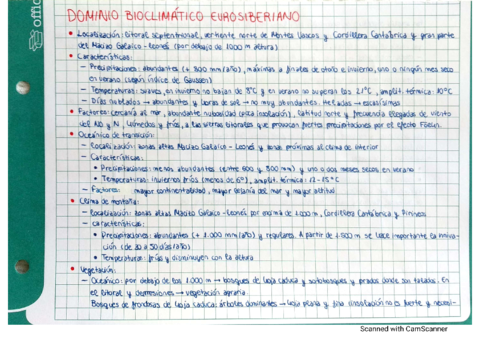 DOMINIO BIOCLIMÁTICO EUROSIBERIANO
• Localización: litoral septentrional, vertiente norte de Montes Vascos y Cordillera Cantábrica y gran parte
del Macizo Galaico-Leonés (por debajo de 1000 m altura)
• Características:
– Precipitaciones: abundantes (+ 800 mm/año), máximas a finales de otoño e invierno, uno o ningún mes seco
en verano (según índice de Gaussen)
– Temperaturas: suaves, en invierno no bajan de 8ºC y en verano no superan los 21ºC, amplit. térmica: 10ºC
– Días nublados → abundantes y horas de sol → no muy abundantes. Heladas → escasísimas
• Factores: cercanía al mar, abundante nubosidad (poca insolación), latitud norte y frecuencia llegadas de viento
del NO y N, húmedos y fríos, a las sierras litorales que provocan fuertes precipitaciones por el efecto Föehn.
• Oceánico de transición:
– Localización: zonas altas Macizo Galaico-Leonés y zonas próximas al clima de interior
– Características:
• Precipitaciones: menos abundantes (entre 600 y 800 mm) y uno o dos meses secos en verano
• Temperaturas: inviernos fríos (menos de 6º), amplit. térmica: 12-15ºC
– Factores: mayor continentalidad, mayor lejanía del mar y mayor altitud
• Clima de montaña:
– Localización: zonas altas Macizo Galaico-Leonés por encima de 1.000 m, Cordillera Cantábrica y Pirineos
– Características:
• Precipitaciones: abundantes (+ 1.000 mm/año) y regulares. A partir de 1.500 m se hace importante la inniva-
ción (de 20 a 50 días/año)
• Temperaturas: frías y disminuyen con la altura
• Vegetación:
– Oceánico: por debajo de los 1.000 m → bosques de hoja caduca y sotobosques y prados donde son talados. En
el litoral y depresiones → vegetación agraria
Bosques de frondosas de hoja caduca: árboles dominantes → hoja plana y fina (insolación no es fuerte y necesi-
Scanned with CamScanner